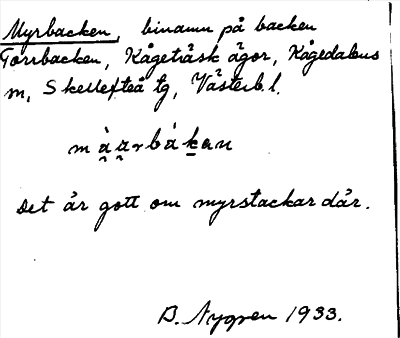 Myrbacken, binamn på backen
Torrbacken, Kågeträsk ägor, Kågedalens
m, Skellefteå tg, Västerb. l.
mä̀a̤rbákan
Det är gott om myrstackar där.
B. Nygren 1933.